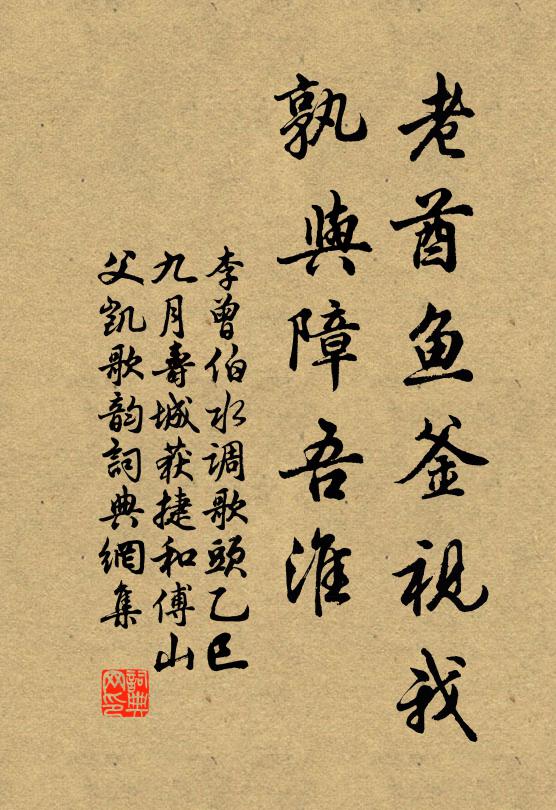 老酋鱼釜视我
孰與障吾淮
李曾伯水调歌頭乙巳
九月壽城获捷和傅山
父凯歌韵詞典網集
詞典
网印